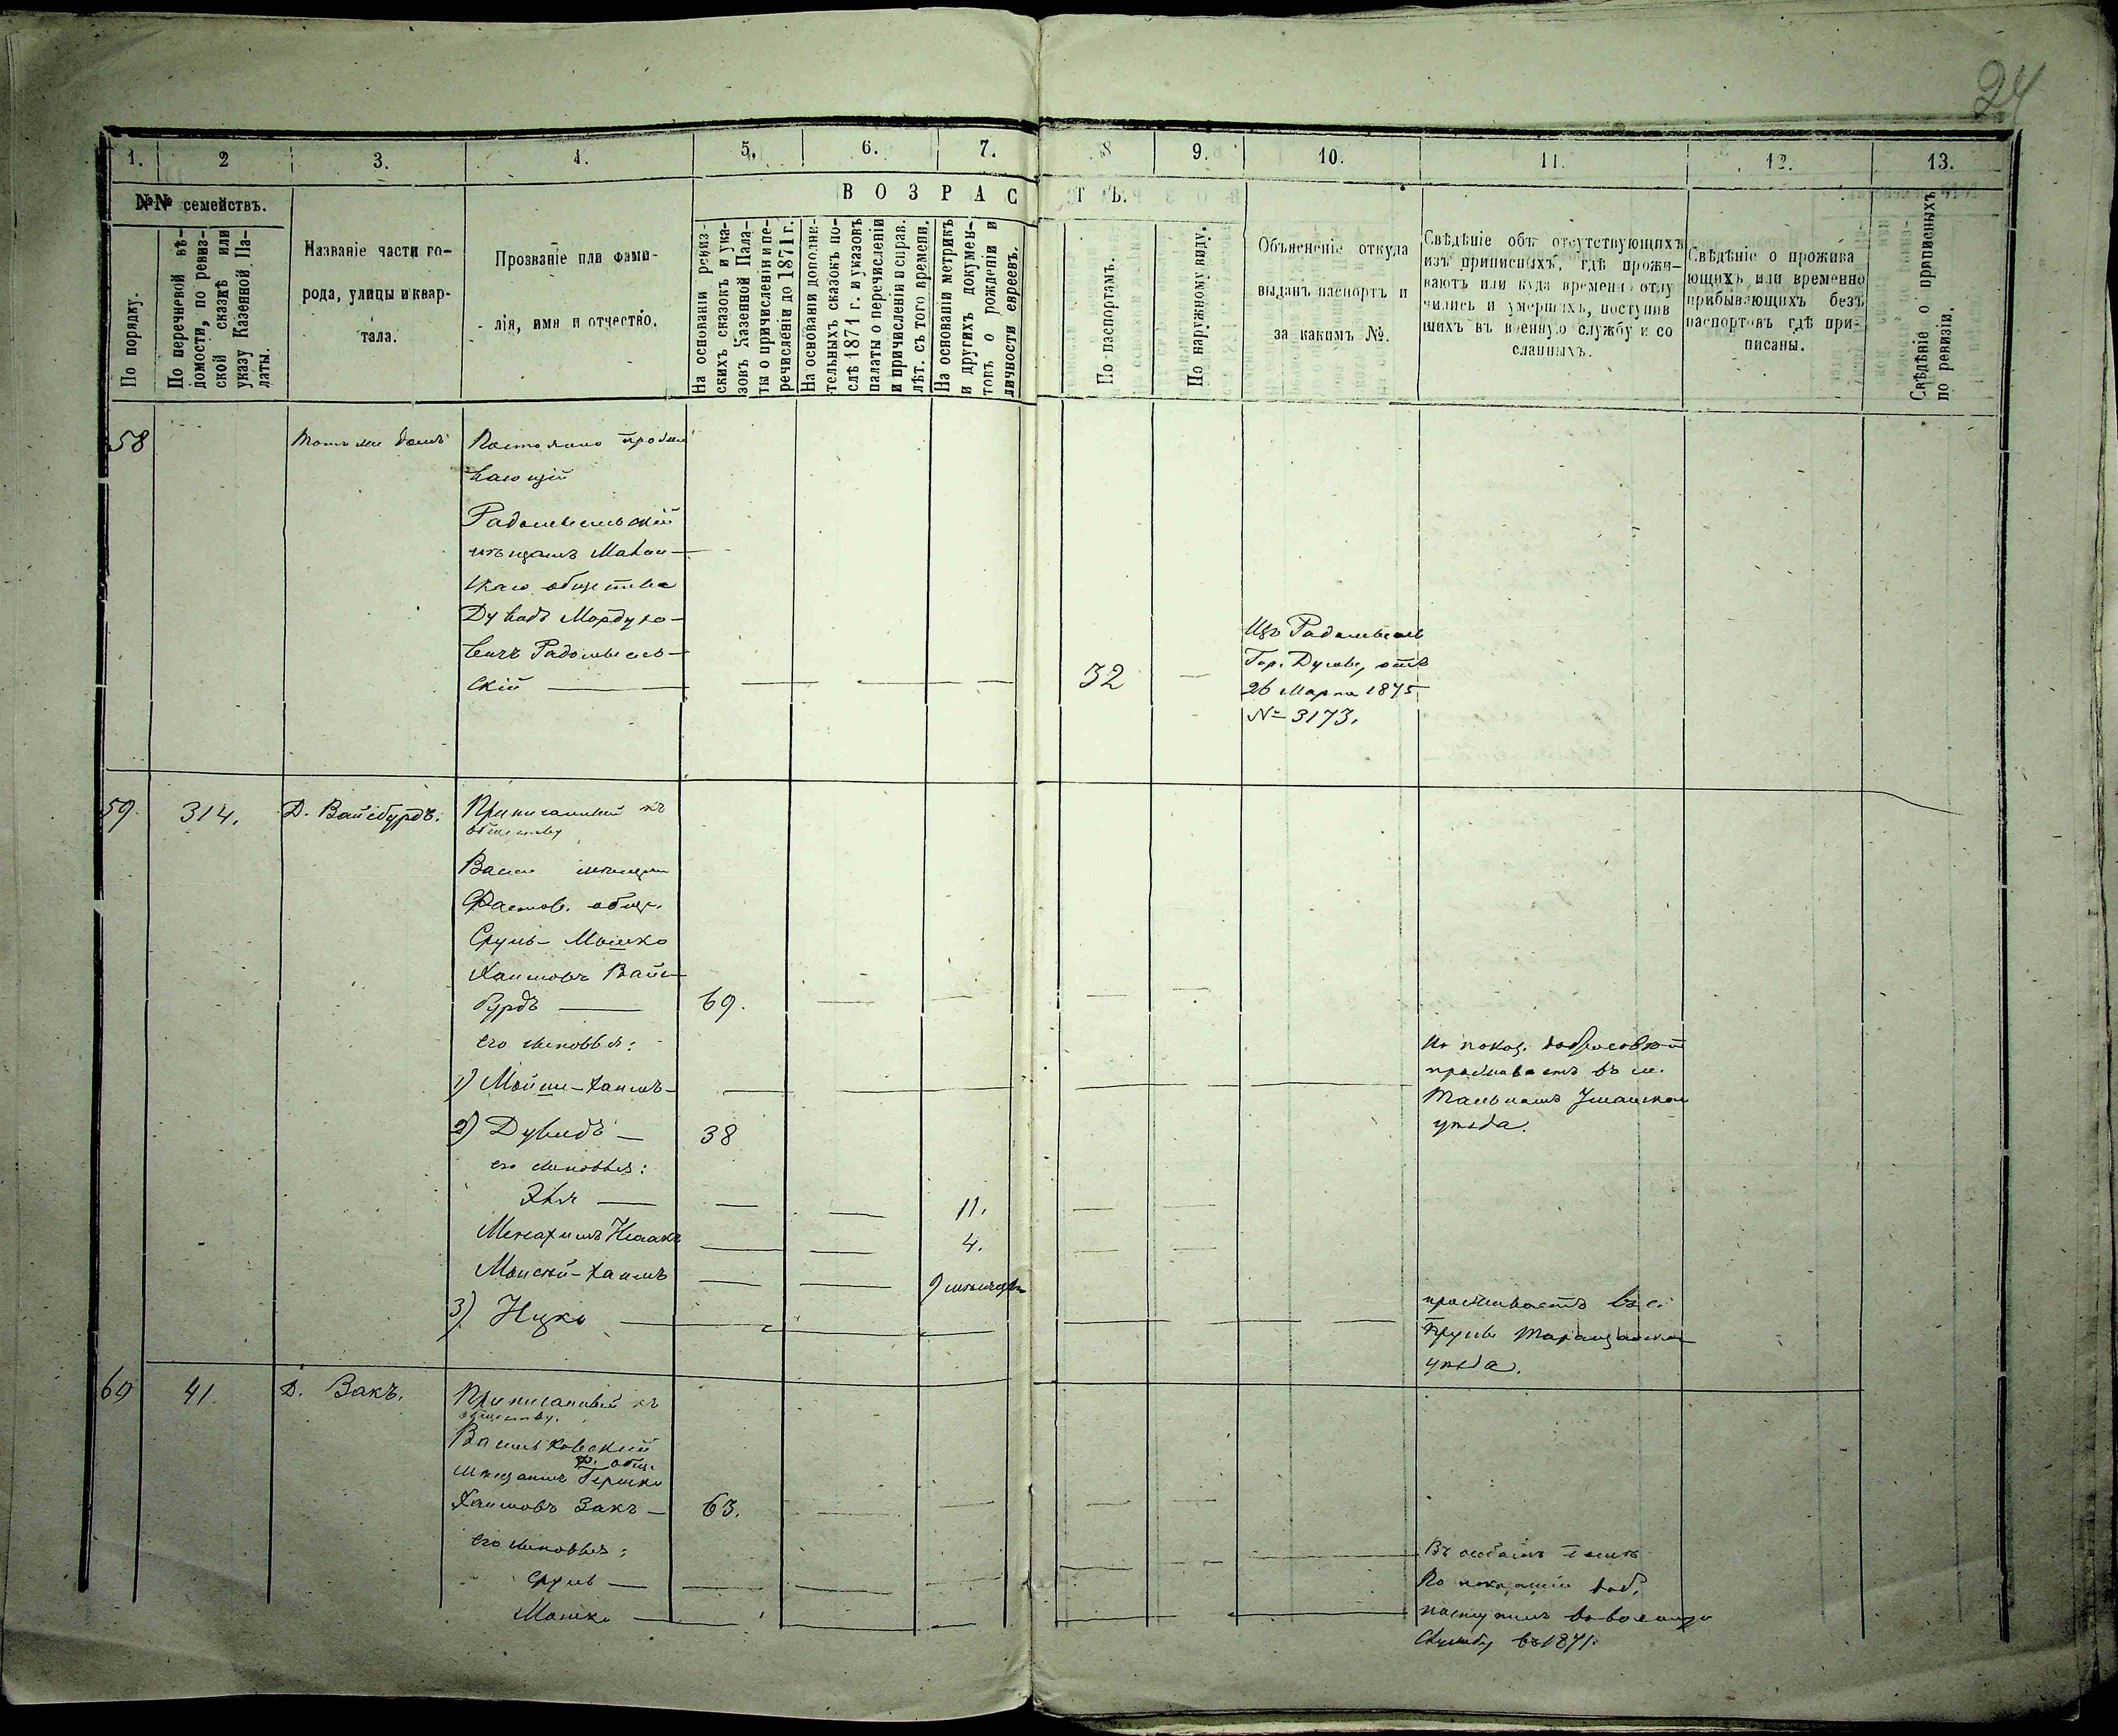 24
1. 2 3. 4. 5. 6. 7. 8 9. 10. 11. 12. 13.
№№ семействъ.
По порядку.
По перечневой вѣ-
домости, по ревиз-
ской сказкѣ или
указу Казенной Па-
латы.
Названіе части го-
рода, улицы и квар-
тала.
Прозваніе или фами-
лія, имя и отчество.
ВОЗРАСТЪ.
На основаніи ревиз-
скихъ сказокъ и ука-
зовъ Казенной Пала-
ты о причисленіи и пе-
речисленіи до 1871 г.
На основаніи дополни-
тельныхъ сказокъ по-
слѣ 1871 г. и указовъ
палаты о перечисленіи
и причисленіи и справ.
лѣт. съ того времени.
На основаніи метрикъ
и другихъ докумен-
товъ о рожденіи и
личности евреевъ.
По паспортамъ.
По наружному виду.
Объясненіе откуда
выданъ паспортъ и
за какимъ №.
Свѣдѣніе объ отсутствующихъ
изъ приписныхъ, гдѣ прожи-
ваютъ или куда временно отлу
чились и умершихъ, поступив
шихъ въ военную службу и со
сланныхъ.
Свѣдѣніе о прожива
ющихъ или временно
прибывающихъ безъ
паспортовъ гдѣ при-
писаны.
Свѣдѣніе о приписныхъ
по ревизіи.
58 Тотъ же домъ Постоянно прожи
вающій
Радомысльскій
мѣщанъ Макаи-
скаго общества
Дувидъ Мордухо-
вичъ Радомысль-
скій — 32 —
Изъ Радомысль
Гор. Думы, отъ
26 Марта 1875
№ 3173.
59. 314. Д. Вайсбурдъ. Приписанный къ
обществу
Васил мѣщан
Фастов. общ.
Сруль-Мошко
Хаимовъ Вайс-
бурдъ — 69.
его сыновья:
1) Мойше-Хаимъ-
По показ. добросовѣст
проживаетъ въ м.
Тальномъ Уманскаго
уѣзда.
2) Дувидъ — 38
его сыновья:
Эля — 11.
Менахимъ Исаакъ 4.
Моисей-Хаимъ 9 мѣсяцевъ
3) Ицко —
проживаетъ въ с.
Таращанскаго
уѣзда.
60 41. Д. Закъ. Приписанный къ
обществу.
Васильковскій
Ф. общ.
мѣщанинъ Гершко
Хаимовъ Закъ — 63.
его сыновья:
Сруль —
Въ особомъ
По показанію доб.
Мошко —
поступилъ въ военную
службу въ 1871.